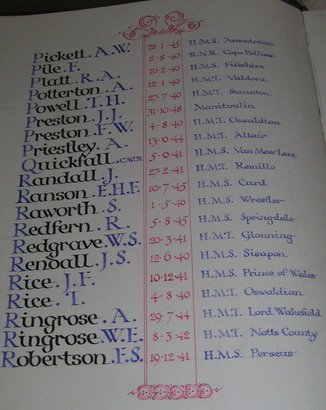 Pickett. A.W. 28·1·45 H.M.S.
Pile. F. 8·8·40 R.N.R. Cape Palliser
Platt. R.A. 20·2·40 H.M.S. Fifeshire
Potterton. A. 12·1·40 H.M.T. Valdora
Powell. T.H. 27·7·40 H.M.T. Staunton
Preston. J.J. 31·10·48 Manitoulin
Preston. F.W. 4·8·40 H.M.T. Oswaldian
Priestley. A. 13·6·44 H.M.T. Altair
Quickfall. C.W.R. 5·9·41 H.M.S. Van Meerlant
Randall. J. 27·2·41 H.M.T. Remillo
Ranson. E.H.F. 10·7·45 H.M.S. Curd
Raworth. S. 1·5·40 H.M.S. Wrestler
Redfern. R. 5·8·45 H.M.S. Springdale
Redgrave. W.S. 20·3·41 H.M.T. Gloaming
Rendall. J.S. 12·6·40 H.M.S. Sisapon
Rice. J.F. 10·12·41 H.M.S. Prince of Wales
Rice. T. 4·8·40 H.M.T. Oswaldian
Ringrose. A. 29·7·44 H.M.T. Lord Wakefield
Ringrose. W.E. 8·3·42 H.M.T. Notts County
Robertson. F.S. 19·12·41 H.M.S. Perseus